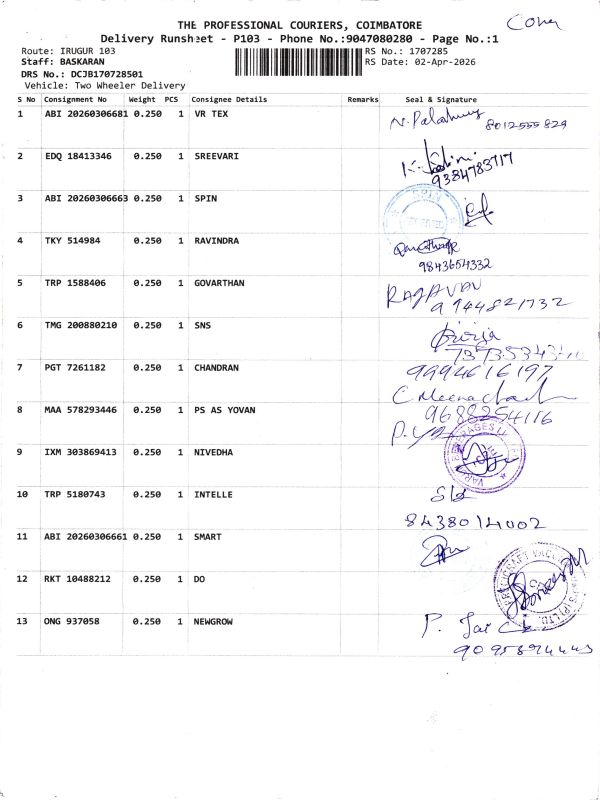 THE PROFESSIONAL COURIERS, COIMBATORE
Delivery Runsheet - P103 - Phone No.:9047080280 - Page No.:1
Route: IRUGUR 103 RS No.: 1707285
Staff: BASKARAN RS Date: 02-Apr-2026
DRS No.: DCJB170728501
Vehicle: Two Wheeler Delivery
S No Consignment No Weight PCS Consignee Details Remarks Seal & Signature
1 ABI 20260306681 0.250 1 VR TEX 8012555829
2 EDQ 18413346 0.250 1 SREEVARI
9384783717
3 ABI 20260306663 0.250 1 SPIN SPIN
4 TKY 514984 0.250 1 RAVINDRA
9843654332
5 TRP 1588406 0.250 1 GOVARTHAN RAGAVAN
9944821732
6 TMG 200880210 0.250 1 SNS
7 PGT 7261182 0.250 1 CHANDRAN 9994616197
C Meenachi
8 MAA 578293446 0.250 1 PS AS YOVAN 9688254116
9 IXM 303869413 0.250 1 NIVEDHA
10 TRP 5180743 0.250 1 INTELLE
8438014002
11 ABI 20260306661 0.250 1 SMART
12 RKT 10488212 0.250 1 DO
13 ONG 937058 0.250 1 NEWGROW P. Jai